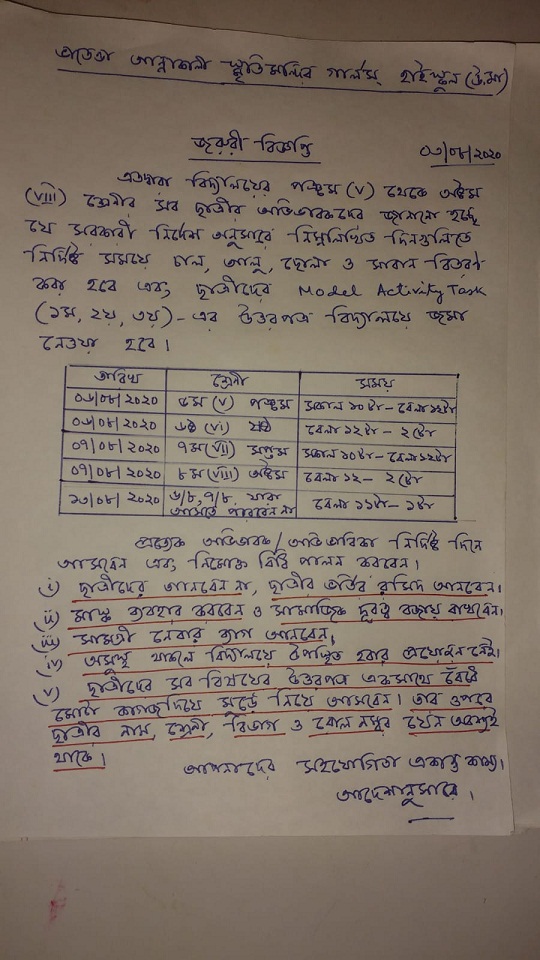 আন্নাকালী স্মৃতিমন্দির গার্লস্ হাইস্কুল (উঃমাঃ)
জরুরী বিজ্ঞপ্তি ০৩/০৮/২০২০
এতদ্বারা বিদ্যালয়ের পঞ্চম (V) থেকে অষ্টম
(VIII) শ্রেনীর সব ছাত্রীর অভিভাবকদের জানানো হচ্ছে
যে সরকারী নির্দেশ অনুসারে নিম্নলিখিত দিনগুলিতে
নির্দিষ্ট সময়ে চাল, আলু, ছোলা ও সাবান বিতরণ
করা হবে এবং ছাত্রীদের Model Activity Task
(১ম, ২য়, ৩য়) - এর উত্তরপত্র বিদ্যালয়ে জমা
নেওয়া হবে।
তারিখ শ্রেনী সময়
০৬/০৮/২০২০ ৫ম (V) পঞ্চম সকাল ১০টা - বেলা ১২টা
০৬/০৮/২০২০ ৬ষ্ঠ (VI) ষষ্ঠ বেলা ১২টা - ২টো
০৭/০৮/২০২০ ৭ম (VII) সপ্তম সকাল ১০টা - বেলা ১২টা
০৭/০৮/২০২০ ৮ম (VIII) অষ্টম বেলা ১২ - ২টো
১০/০৮/২০২০ যারা বেলা ১১টা - ১টা
আসতে পারবেন না
প্রত্যেক অভিভাবক/অভিভাবিকা নির্দিষ্ট দিনে
আসবেন এবং নিম্নোক্ত বিধি পালন করবেন।
i) ছাত্রীদের আনবেন না, ছাত্রীর ভর্তির রসিদ আনবেন।
ii) মাস্ক ব্যবহার করবেন ও সামাজিক দূরত্ব বজায় রাখবেন।
iii) সামগ্রী নেবার ব্যাগ আনবেন।
iv) অসুস্থ থাকলে বিদ্যালয়ে উপস্থিত হবার প্রয়োজন নেই।
v) ছাত্রীদের সব বিষয়ের উত্তরপত্র একসাথে বেঁধে
মোটা কাগজ দিয়ে মুড়ে নিয়ে আসবেন। তার ওপরে
ছাত্রীর নাম, শ্রেনী, বিভাগ ও রোল নম্বর যেন অবশ্যই
থাকে।
আপনাদের সহযোগিতা একান্ত কাম্য।
আদেশানুসারে।